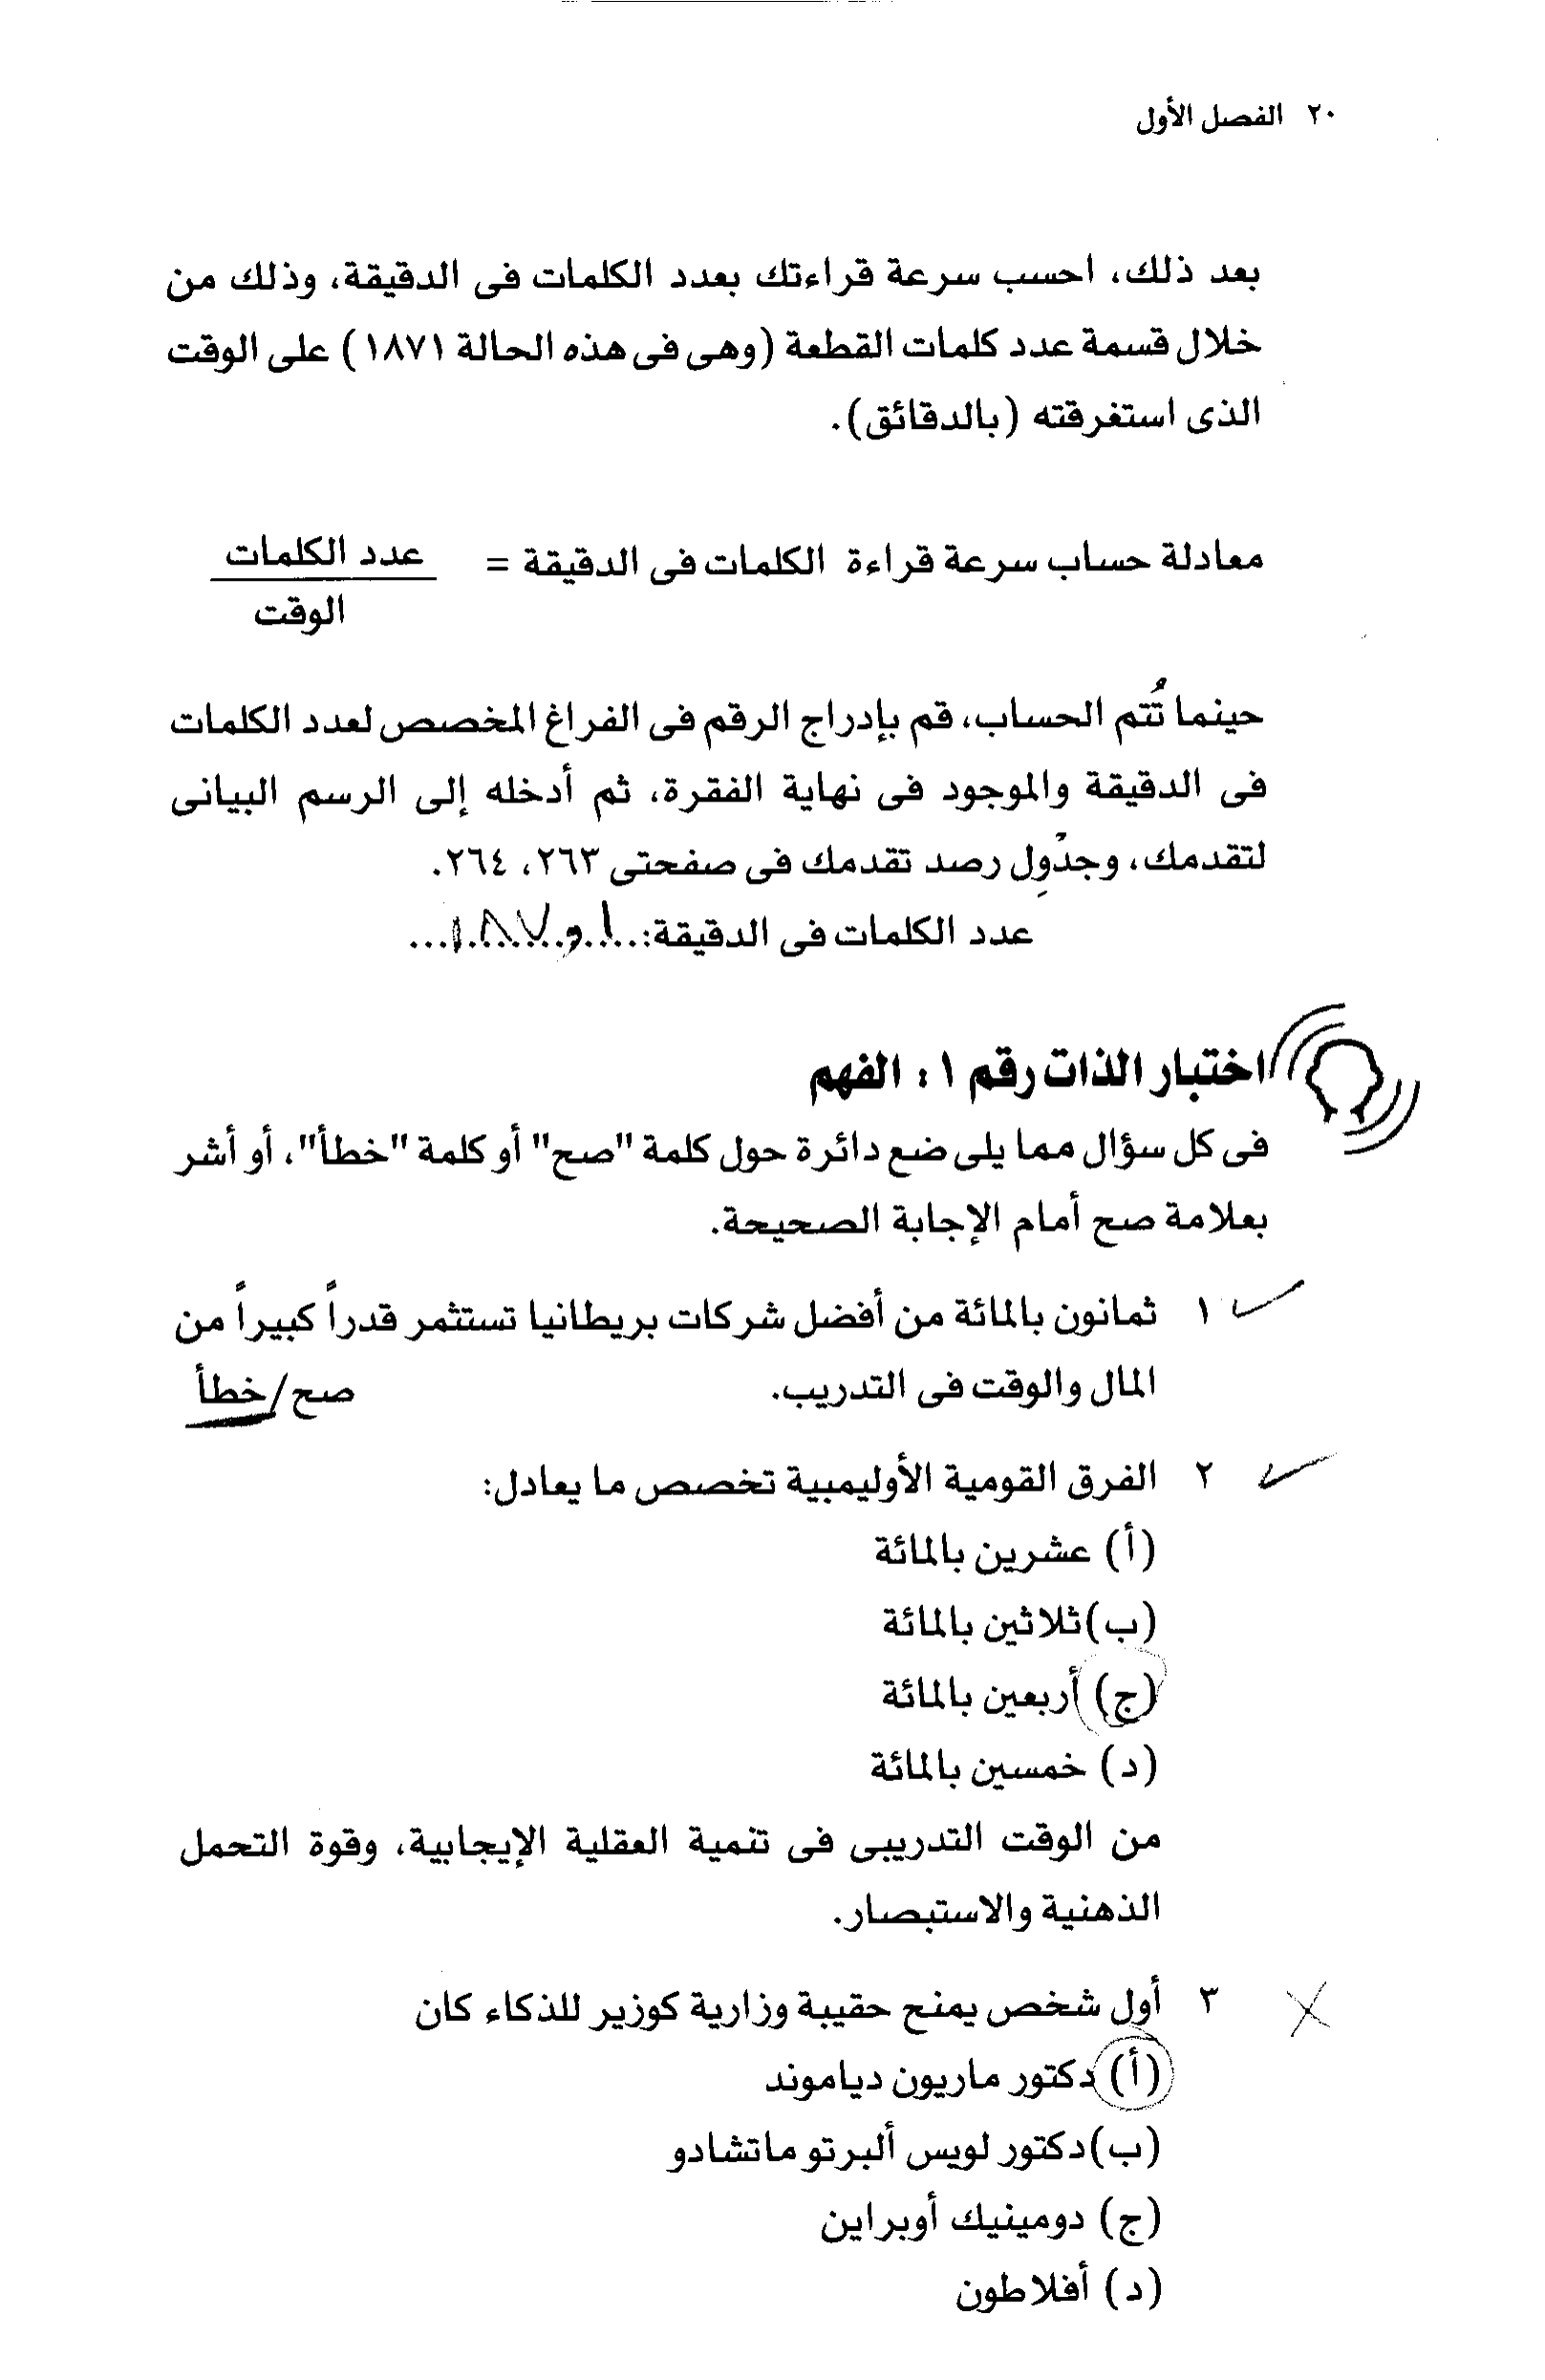 ٢٠ الفصل الأول
بعد ذلك، احسب سرعة قراءتك بعدد الكلمات فى الدقيقة، وذلك من
خلال قسمة عدد كلمات القطعة (وهى فى هذه الحالة ١٨٧١) على الوقت
الذى استغرقته (بالدقائق).
معادلة حساب سرعة قراءة الكلمات فى الدقيقة = عدد الكلمات
الوقت
حينما تُتم الحساب، قم بإدراج الرقم فى الفراغ المخصص لعدد الكلمات
فى الدقيقة والموجود فى نهاية الفقرة، ثم أدخله إلى الرسم البيانى
لتقدمك، وجدول رصد تقدمك فى صفحتى ٢٦٣، ٢٦٤.
عدد الكلمات فى الدقيقة:
اختبار الذات رقم ١ : الفهم
فى كل سؤال مما يلى ضع دائرة حول كلمة "صح" أو كلمة "خطأ"، أو أشر
بعلامة صح أمام الإجابة الصحيحة.
١ ثمانون بالمائة من أفضل شركات بريطانيا تستثمر قدراً كبيراً من
المال والوقت فى التدريب. صح/خطأ
٢ الفرق القومية الأوليمبية تخصص ما يعادل:
(أ) عشرين بالمائة
(ب) ثلاثين بالمائة
(ج) أربعين بالمائة
(د) خمسين بالمائة
من الوقت التدريبى فى تنمية العقلية الإيجابية، وقوة التحمل
الذهنية والاستبصار.
٣ أول شخص يمنح حقيبة وزارية كوزير للذكاء كان
(أ) دكتور ماريون دياموند
(ب) دكتور لويس ألبرتو ماتشادو
(ج) دومينيك أوبراين
(د) أفلاطون